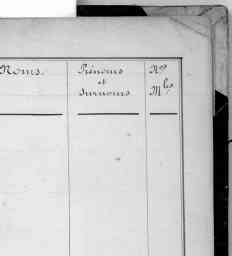 Noms.
Prénoms
et
surnoms
Nos
Mles